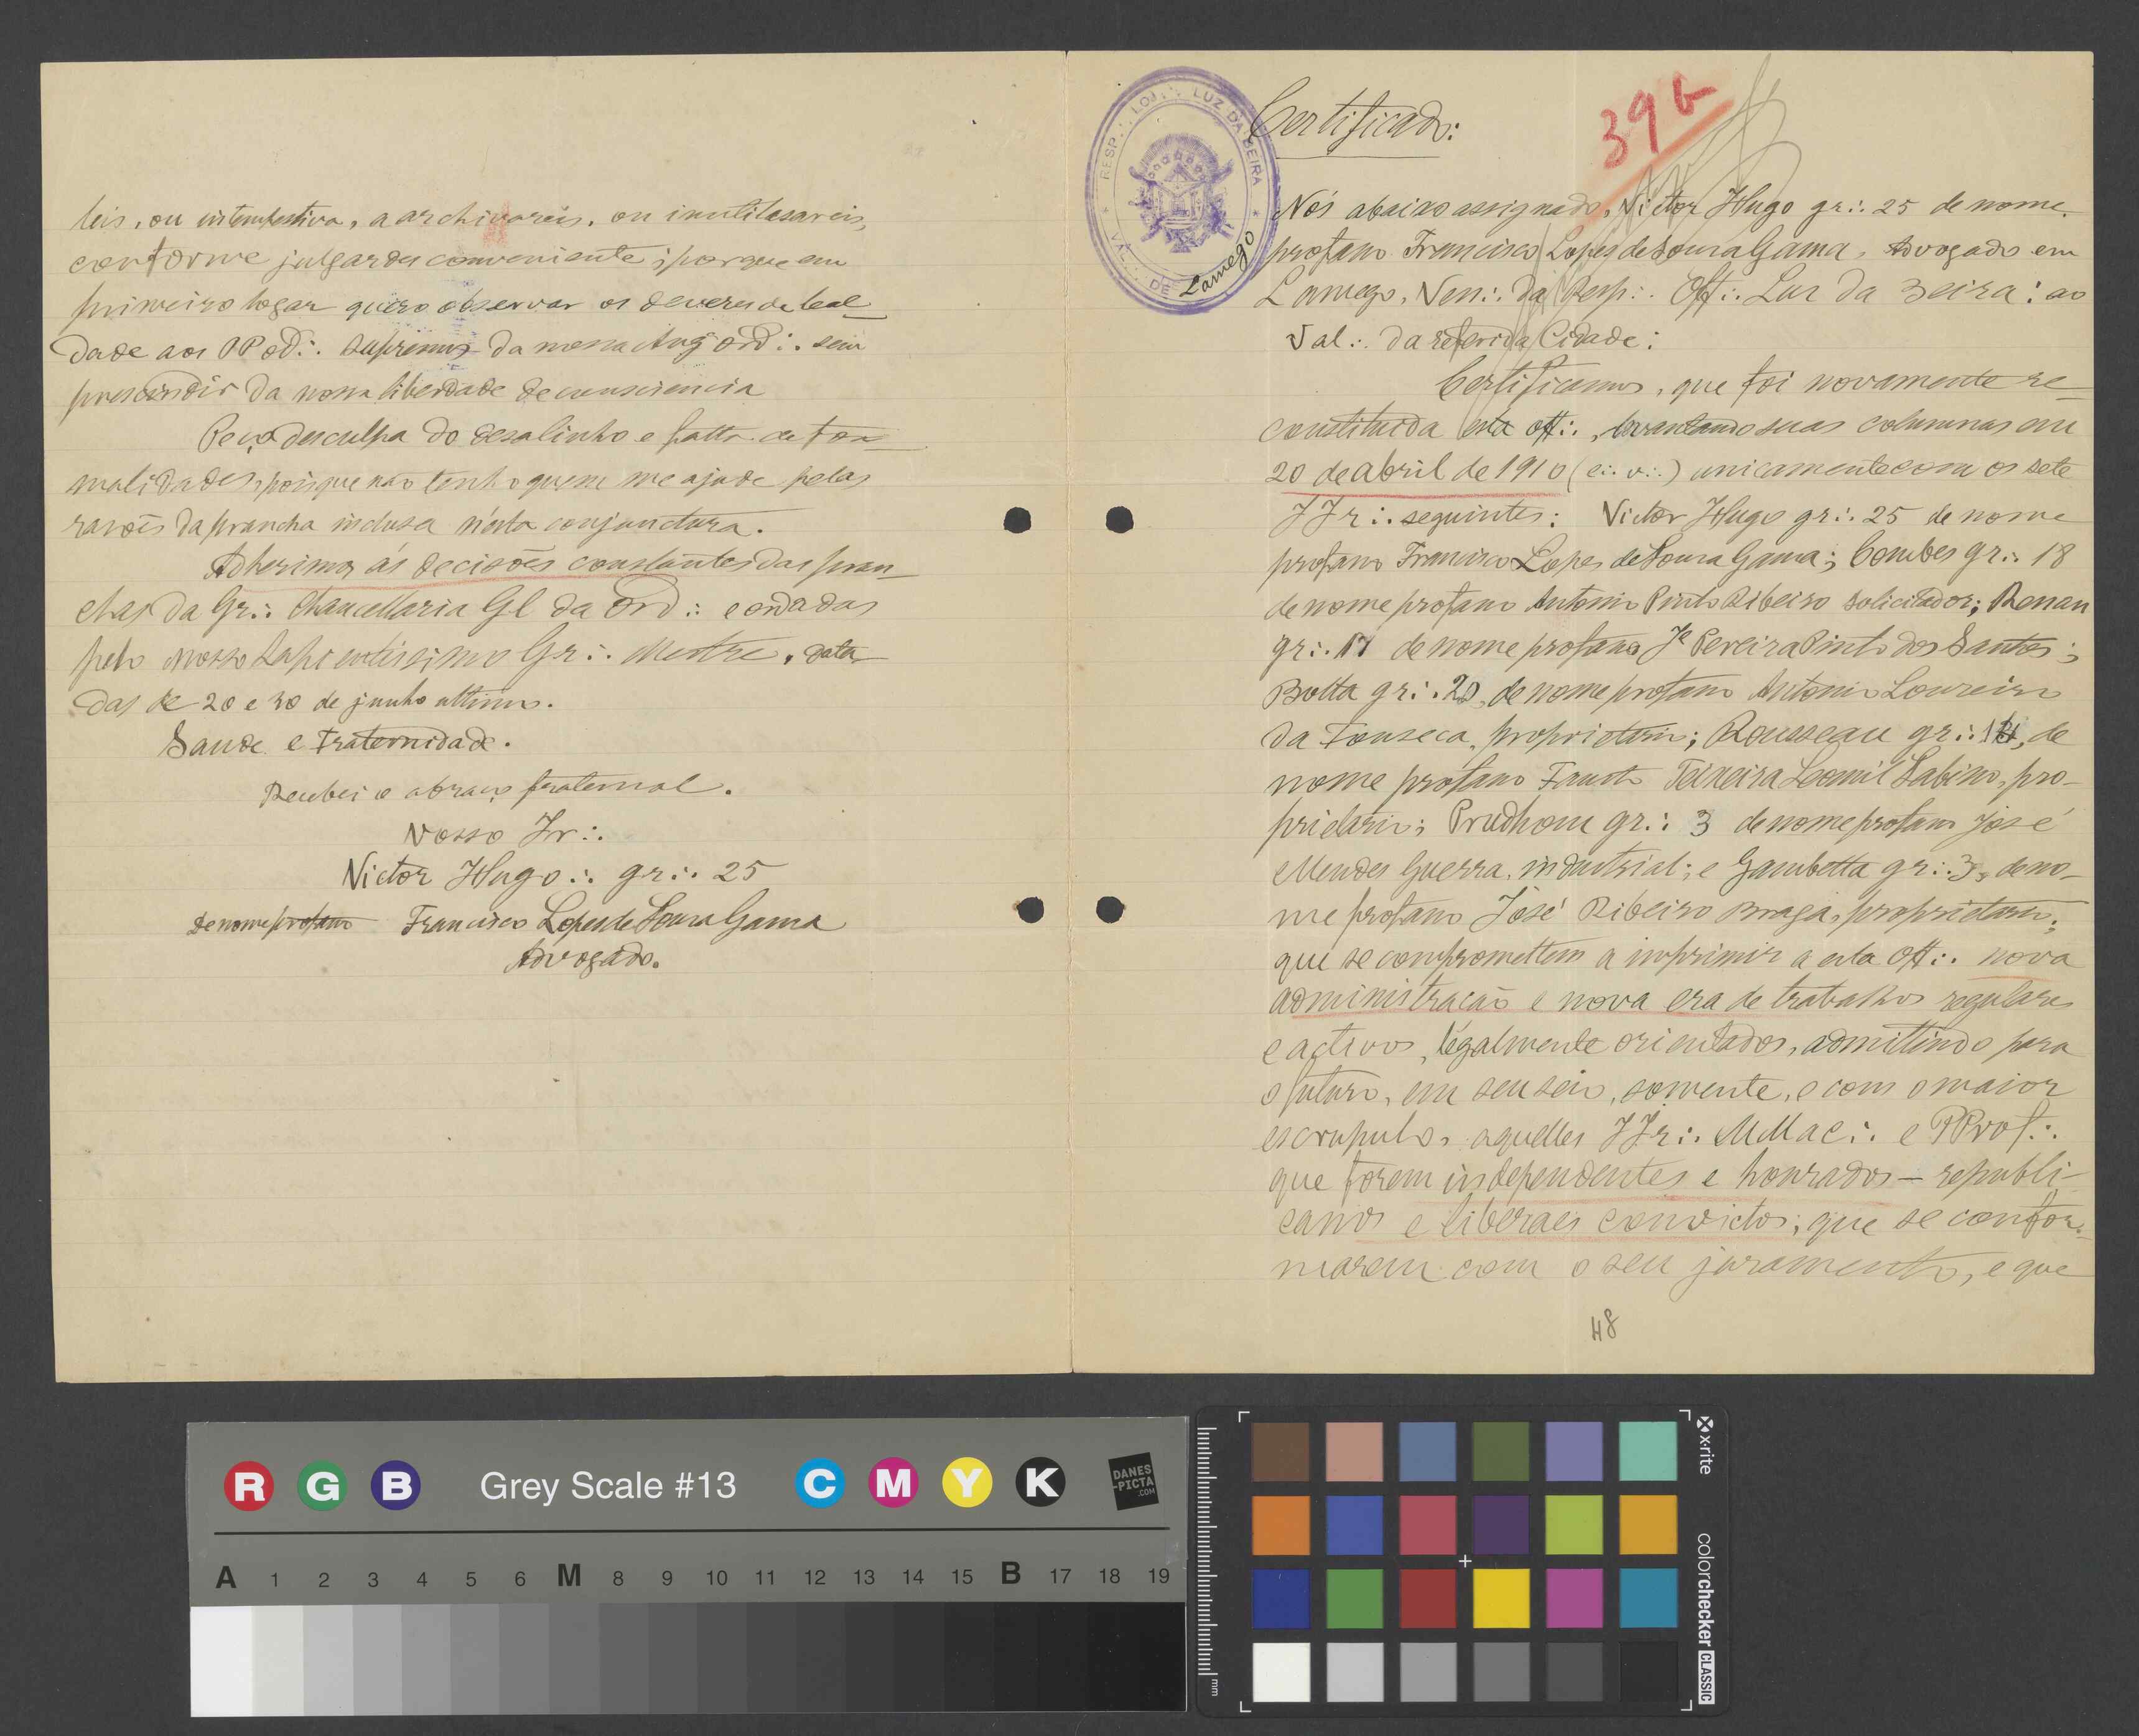 leis, ou intempestiva, a archivareis, ou inutilesareis,
conforme julgardes conveniente; porque em
primeiro logar quero observar os deveres de leal-
dade aos PPod∴ Supremos da nossa Aug Ord∴ sem
prescindir da nossa liberdade de consciencia
Peço desculpa do desalinho e falta de for-
malidades, pois que não tenho quem me ajude pelas
rasoẽs da prancha inclusa n'esta conjunctura.
Adherimos ás decisoẽs constantes das pran-
chas da Gr∴ Chancellaria Gl da Ord∴ e
pelo nosso Sapientissimo Gr∴ Mestre, data-
das de 20 e 30 de junho ultimo.
Saude e Fraternidade.
Recebei o abraço fraternal.
Vosso Ir∴
Victor Hugo∴ gr∴ 25
de nome profano Francisco Lopes de Sousa Gama
Advogado.
RESP∴ LOJ∴ LUZ DA BEIRA
VAL∴ DE Lamego
Certificado:
39 b
Nós abaixo assignado, Victor Hugo gr∴ 25 de nome
profano Francisco Lopes de Sousa Gama, Advogado em
Lamego, Ven∴ da Resp∴ Off∴ Luz da Beira: ao
Val∴ da referida Cidade:
Certificamos, que foi novamente re-
constituida esta off∴, levantando suas columnas em
20 de abril de 1910 (e∴ v∴) unicamente com os sete
IIr∴ seguintes: Victor Hugo gr∴ 25 de nome
profano Francisco Lopes de Sousa Gama; Combes gr∴ 18
de nome profano Antonio Pinto Ribeiro solicitador; Renan
gr∴ 17 de nome profano Je Pereira Pinto dos Santos;
Botta gr∴ 20, de nome profano Antonio Loureiro
da Fonseca, proprietario; Rousseau gr∴, de
nome profano Fausto Teixeira Leomil Sabino, pro-
prietario; Prudhom gr∴ 3 de nome profano José
Mendes Guerra, industrial; e Gambetta gr∴ 3, de no-
me profano José Ribeiro Braga, proprietario;
que se compromettem a imprimir a esta off∴ nova
administração e nova era de trabalhos regulares
e activos, légalmente orientados, admittindo para
o futuro, em seu seio, somente, e com o maior
escrupulo, aquelles IIr∴ MMaç∴ e PProf∴
que forem independentes e honrados – republi-
canos e liberaes convictos; que se confor-
marem com o seu juramento, e que
48
R G B Grey Scale #13 C M Y K DANES-PICTA.COM
A 1 2 3 4 5 6 M 8 9 10 11 12 13 14 15 B 17 18 19
x-rite
colorchecker CLASSIC
mm